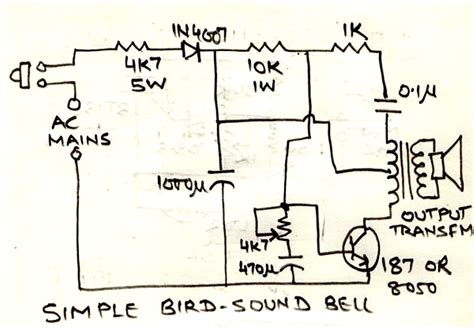 1N4007
1K
4K7
5W
10K
1W
0.1µ
AC
MAINS
1000µ
OUTPUT
TRANSFM
4K7
470µ
187 OR
8050
SIMPLE BIRD-SOUND BELL